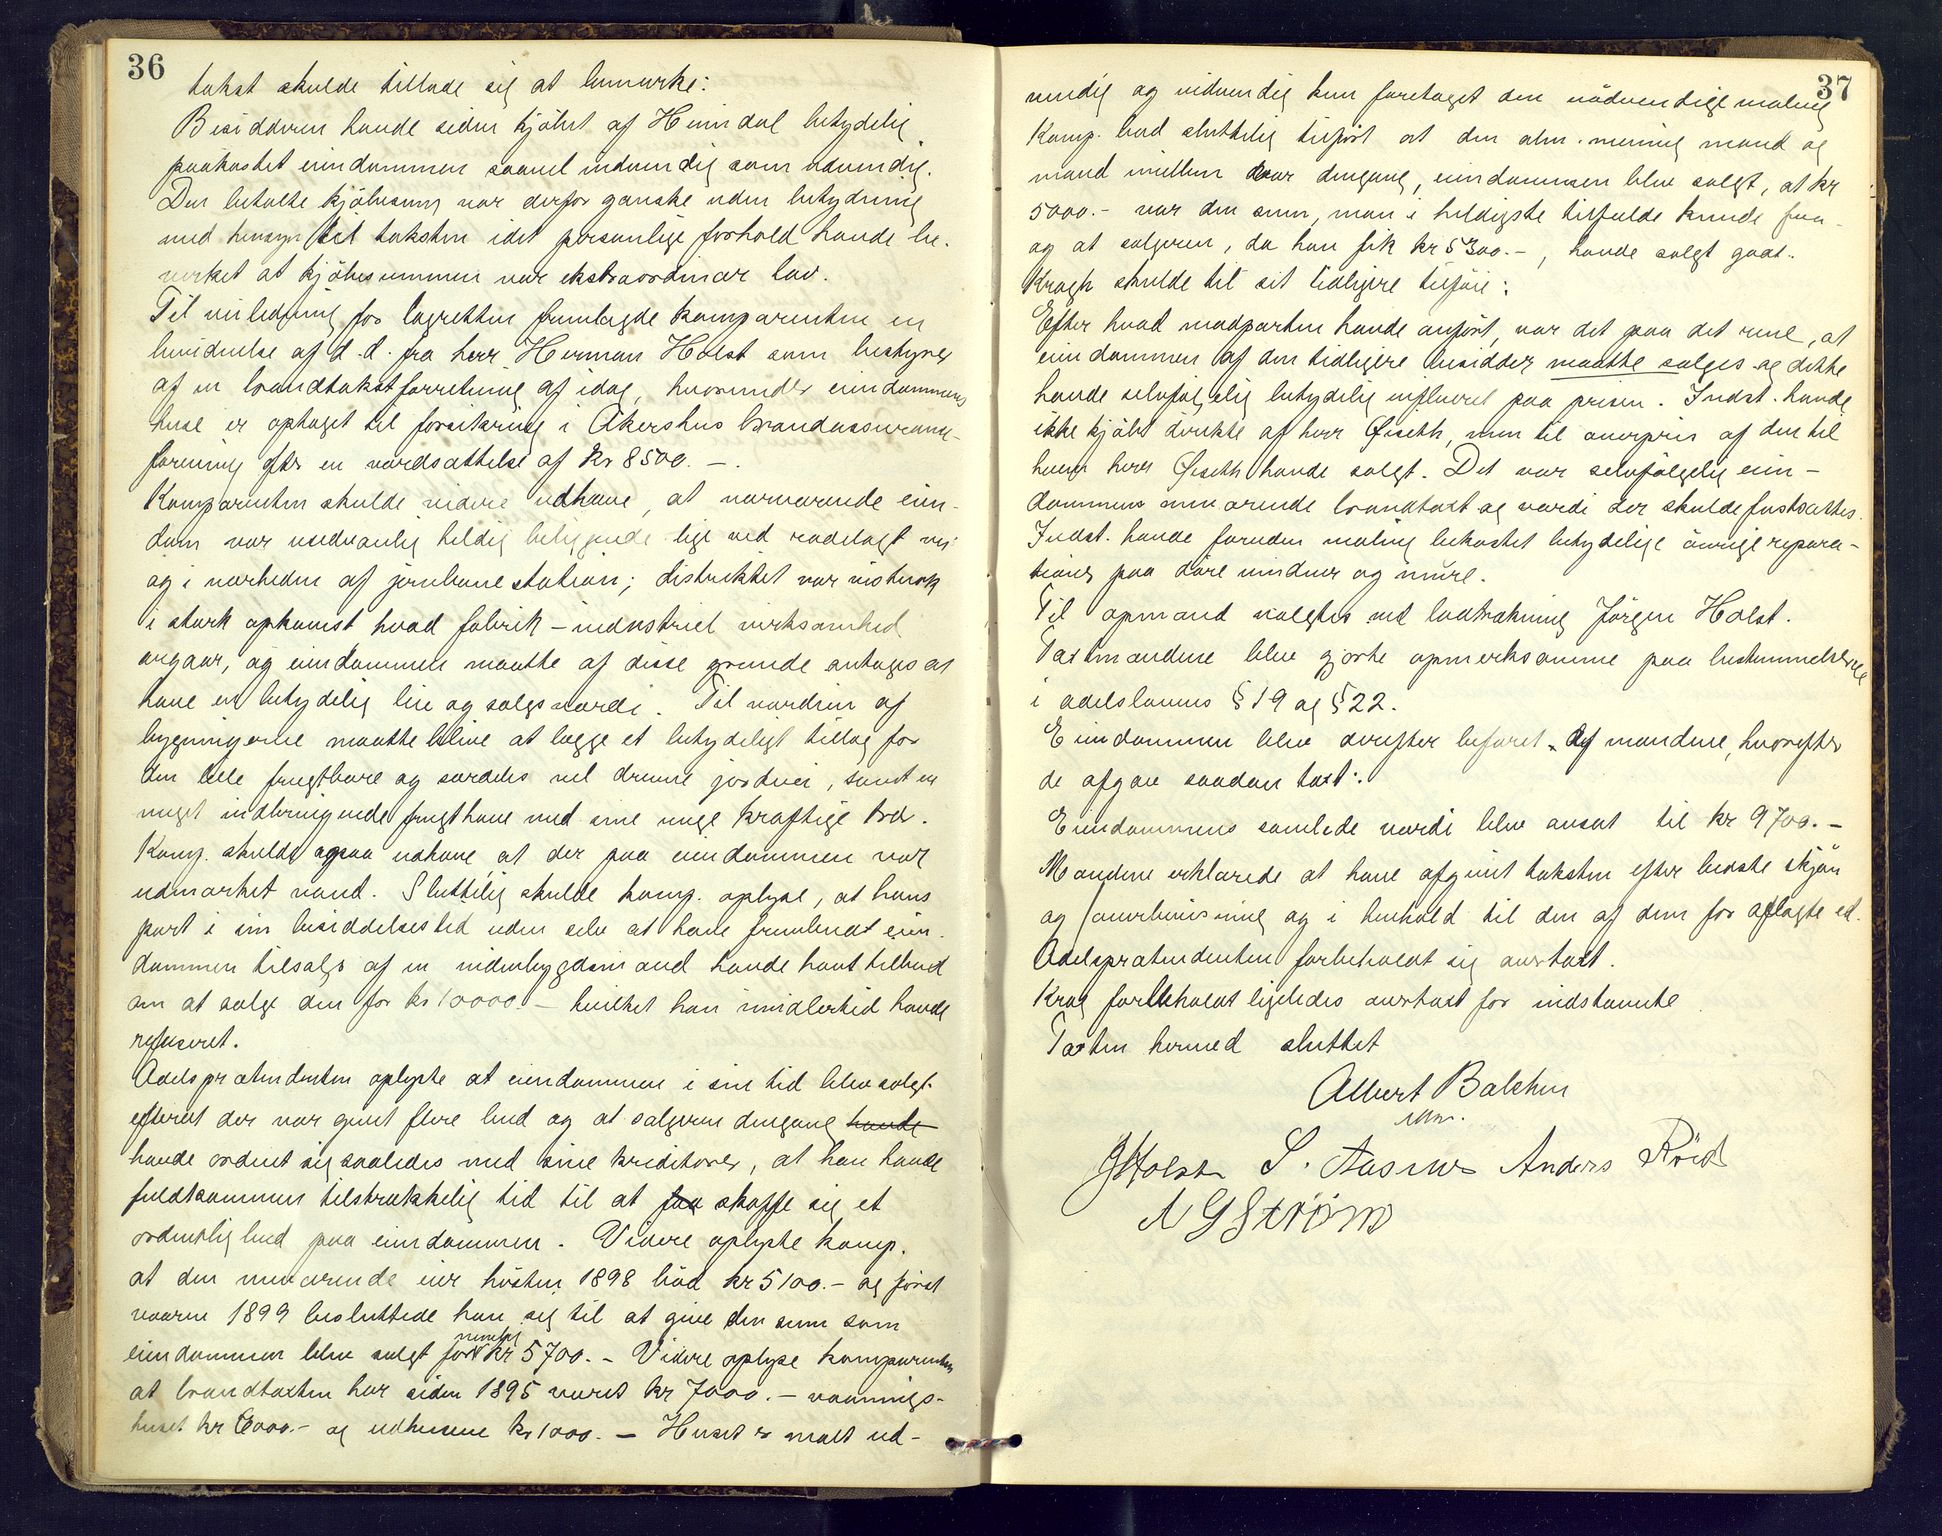 36
takst skulde tillade sig at bemærke:
Besidderen havde siden kjøbet af Heimdal betydelig
paakostet eiendommen saavel indvendig som udvendig.
Den betalte kjøbesum var derfor ganske uden betydning
med hensyn til taksten idet personlige forhold havde be-
virket at kjøbesummen var ekstraordinær lav.
Til veiledning for lagretten fremlagde komparenten en
bevidnelse af d.d. fra herr Herman Holst som bestyrer
af en brandtakstforretning af idag, hvorunder eiendommens
huse er optaget til forsikring i Akershus brandassurance-
forening efter en værdsættelse af kr 8500.-.
Komparenten skulde videre udhæve, at nærværende eien-
dom var usedvanlig heldig beliggende lige ved rodelagt vei
og i nærheden af jernbanestation; distriktet var vistnok
i stærk opkomst hvad fabrik - industriel virksomhed
angaar, og eiendommen maatte af disse grunde antages at
have en betydelig leie og salgsværdi. Til værdien af
bygningerne maatte blive at lægge et betydeligt tillæg for
den lille frugtbare og særdeles vel drevne jordvei, samt en
meget indbringende frugthave med sine unge kraftige trær.
Komp. skulde ogsaa udhæve at der paa eiendommen var
udmærket vand. Sluttelig skulde komp. oplyse, at hans
part i sin besiddelsestid uden selv at have frembudt eien-
dommen tilsalgs af en indenbygdsmand havde havt tilbud
om at sælge den for kr 10000.- hvilket han imidlertid havde
refuseret.
Odelsprætendenten oplyste at eiendommen i sin tid blev solgt
efterat der var givet flere bud og at sælgeren dengang havde
havde ordnet sig saaledes med sine kreditorer, at han havde
fuldkommen tilstrækkelig tid til at faa skaffe sig et
ordentlig bud paa eiendommen. Videre oplyste komp.
at den nuværende eier høsten 1898 bød kr 5100.- og først
vaaren 1899 besluttede han sig til at give den sum som
eiendommen blev solgt for nemlig kr 5700.- Videre oplyse komparenten
at brandtaxten har siden 1895 været kr 7000.- vaanings-
huset kr 6000.- og udhusene kr 1000.- Huset er malt ud-
37
vendig og indvendig kun foretaget den nödvendige maling
Komp. bad sluttelig tilført at den alm. mening mand og
mand imellem var dengang, eiendommen blev solgt, at kr
5000.- var den sum, man i heldigste tilfælde kunde faa
og at sælgeren, da han fik kr 5300.-, havde solgt godt.
Kragh skulde til sit tidligere tilføie:
Efter hvad modparten havde anført, var det paa det rene, at
eiendommen af den tidligere besidder maatte sælges og dette
havde selvfølgelig betydelig influeret paa prisen. Indst. havde
ikke kjøbt direkte af herr Øiseth, men til overpris af den til
hvem herr Øiseth havde solgt. Det var selvfølgelig eien-
dommens nuværende brandtaxt og værdi der skulde fastsættes.
Indst. havde foruden maling bekostet betydelige øvrige repara-
tioner paa døre vinduer og mure.
Til opmand valgtes ved lodtrækning Jørgen Holst.
Taxtmændene blev gjorte opmerksomme paa bestemmelserne
i odelslovens § 19 og § 22.
Eiendommen blev derefter befaret af mændene, hvorefter
de afgav saadan taxt:
Eiendommens samlede værdi blev ansat til kr 9700.-
Mændene erklærede at have afgivet taksten efter bedste skjøn
og overbevisning og i henhold til den af dem før aflagte ed.
Odelsprætendenten forbeholdt sig overtaxt.
Krag forbeholdt ligeledes overtaxt for indstevnte
Taxten hermed sluttet
Albert Balchen
JHolst S. Aasnes Anders Röid
A G Strøm